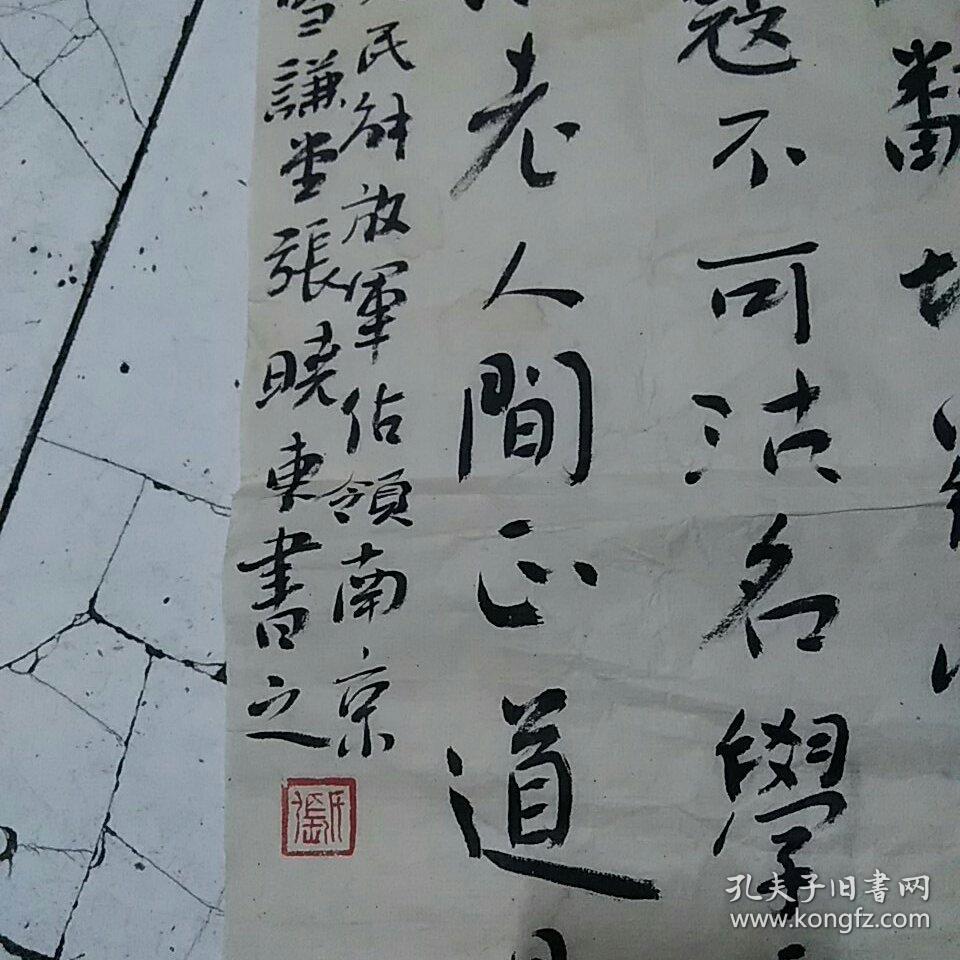 翻地
寇不可沽名學
老人間正道
民解放軍佔領南京
雪謙堂張曉東書之
張氏
孔夫子旧書网
www.kongfz.com